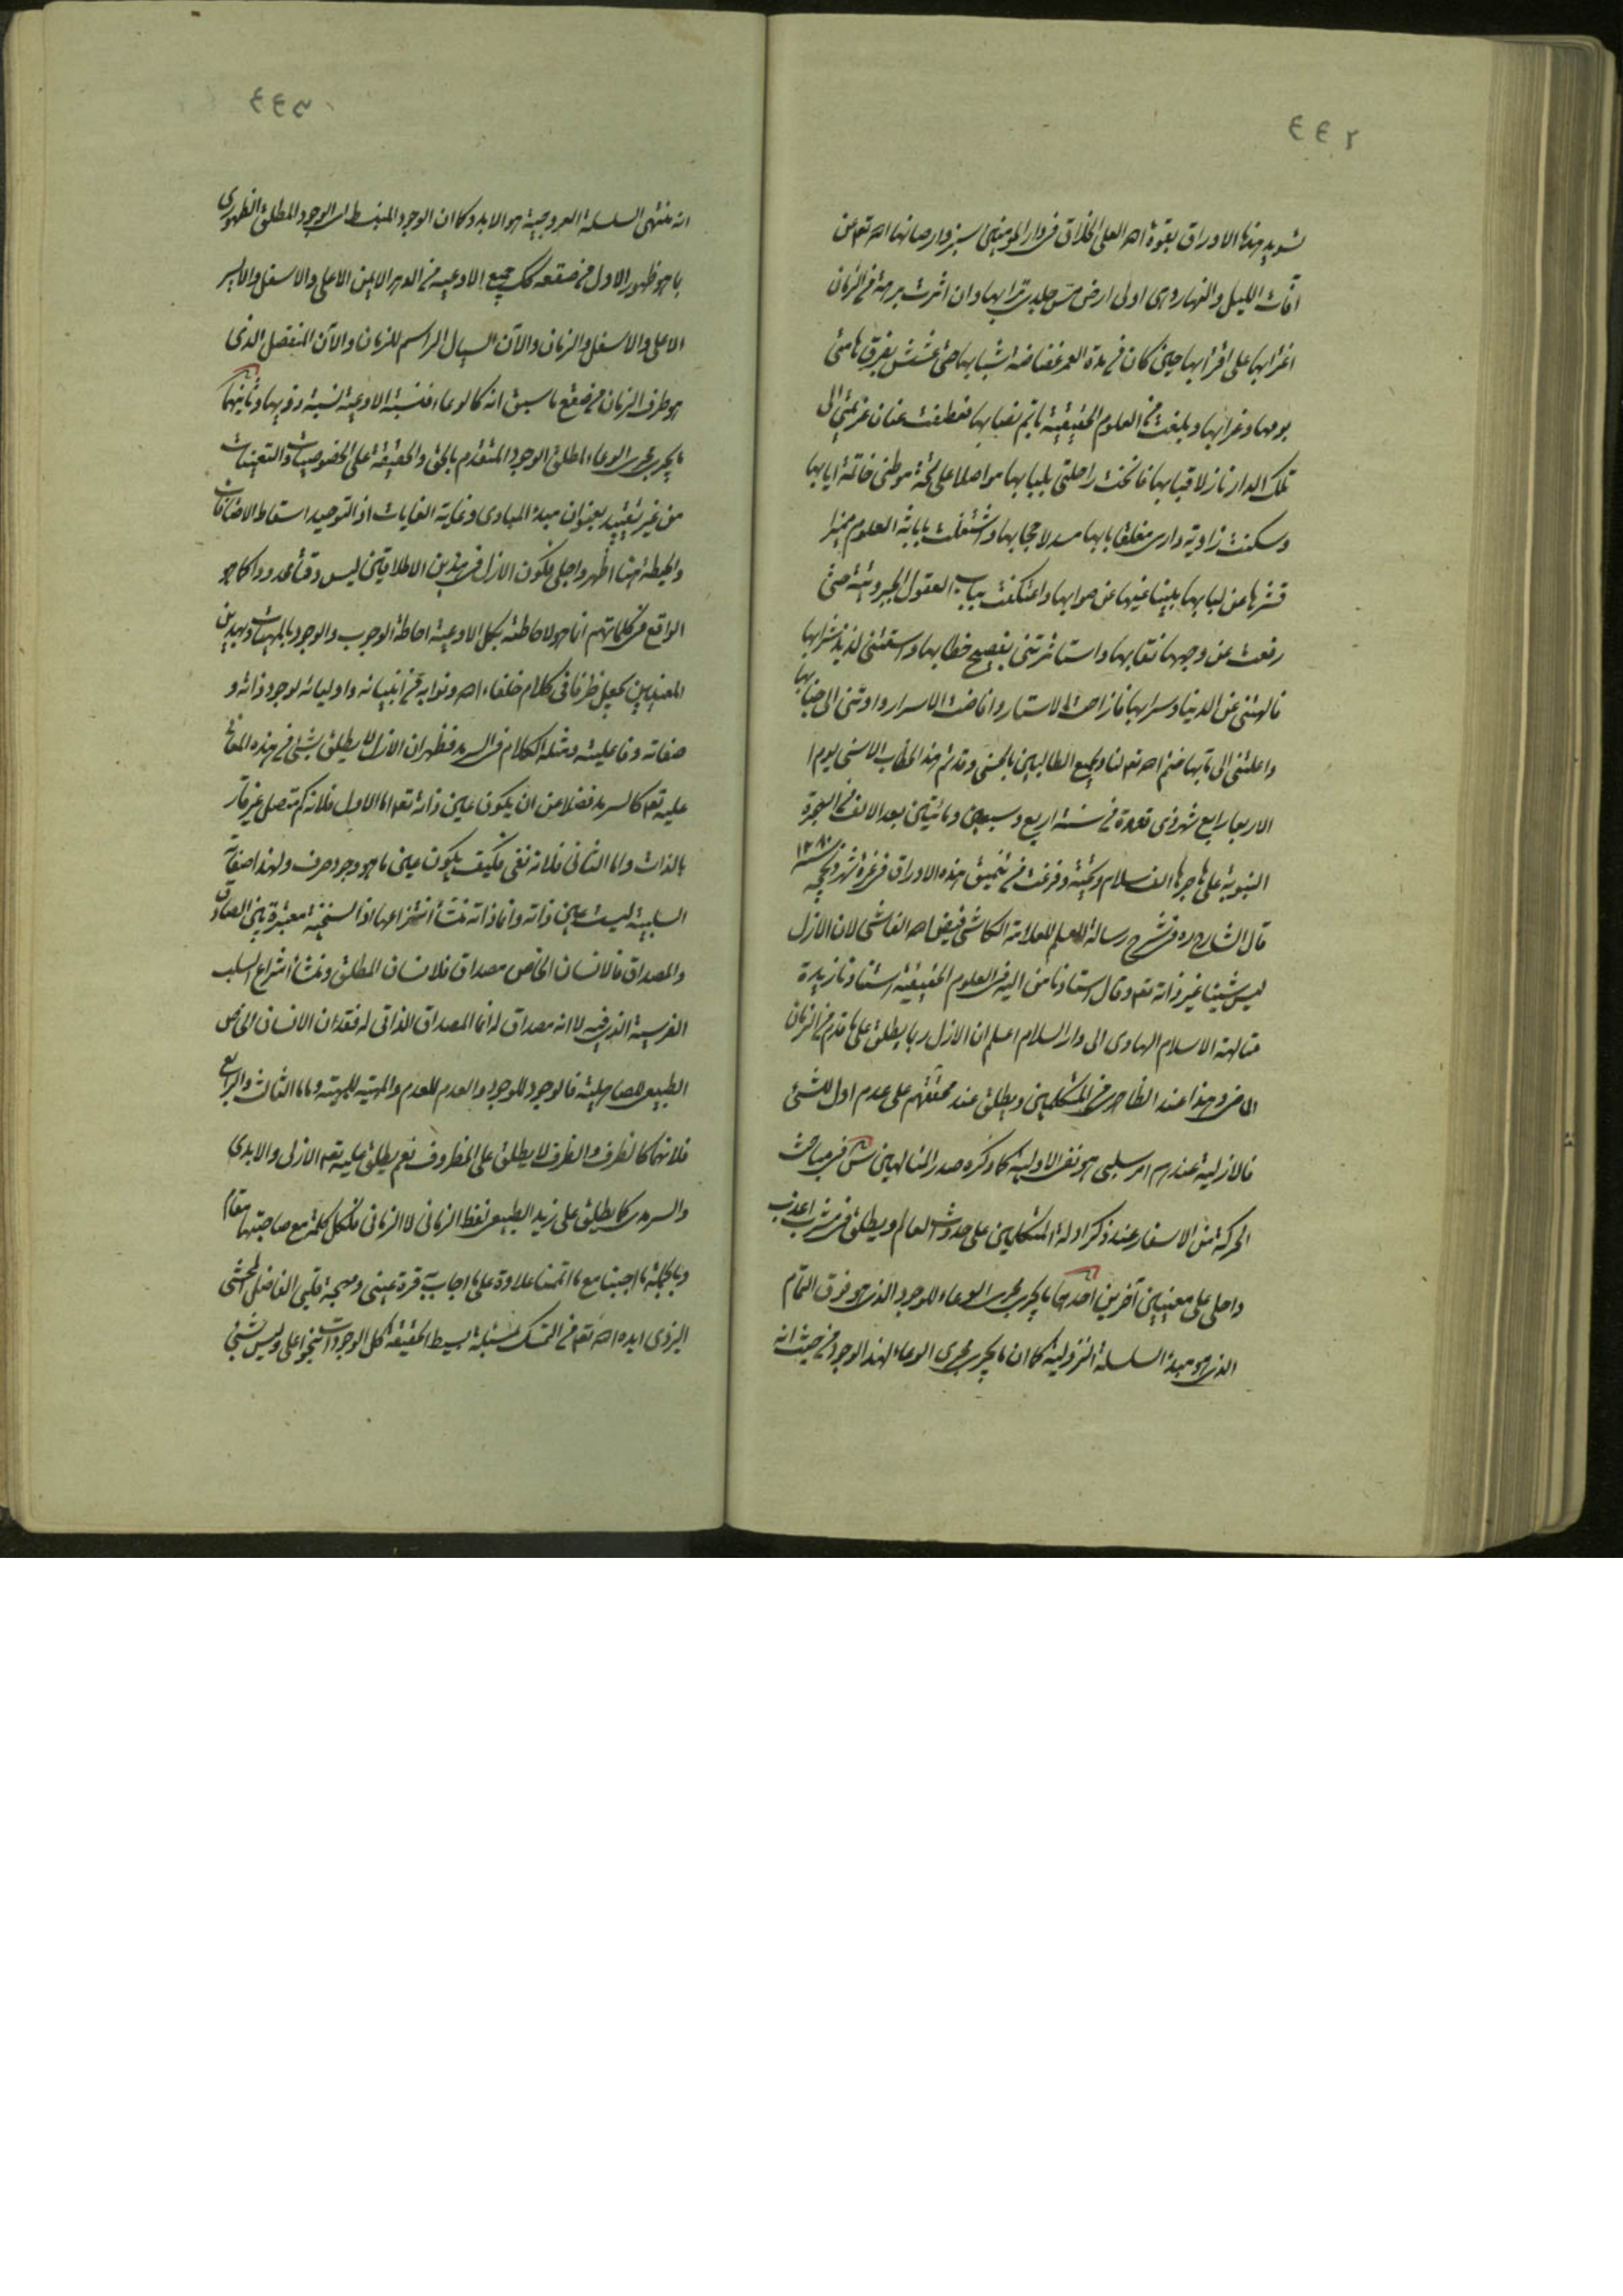 ٤٤٢
تسويد هذه الاوراق بقوة الله العلى الخلاق فى دار المؤمنين سبزوار صانها الله تعم عن
آفات الليل والنهار وهى اولى ارض مس جلدى ترابها وان اثرت برهة من الزمان
اغترابها على اقترابها حين كان فى مدة العمر شبابها حتى عشش بفرق هامتى
بومها وغرابها وبلغت من العلوم الحقيقية ما تم نصابها فعطفت عنان عزيمتى الى
تلك الدار نازلا قبابها فانخت راحلتى ببابها مواصلا على موطنى خاتمة ايابها
وسكنت زاوية دارى مغلقا بابها مسدلا حجابها واشتغلت بابانة العلوم مميزا
قشرها عن لبابها مبينا غيها عن صوابها واعتكفت بباب العقول الجبروتية حتى
رفعت عن وجهها نقابها واستاثرتنى بفصيح خطابها واسقتنى لذيذ شرابها
فالهتنى عن الدنيا وسرابها فازاحت الاستار وافاضت الاسرار واوتنى الى جنابها
واعلتنى الى ختم الله تعم لنا ولجميع الطالبين بالحسنى وقد تم هذا الخطاب الاسنى يوم
الاربعا رابع شهر ذى قعدة من سنة اربع وسبعين ومائتين بعد الالف من الهجرة
النبوية على هاجرها الف سلام وتحية وفرغت من تنميق هذه الاوراق فى غرة شهر ذيحجه ١٢٨٠
قال الشارح ره فى شرح رسالة العلم للعلامة الكاشى فيض الله الفاشى لان الازل
ليس شيئا غير ذاته تعم وقال استادنا من اليه فى العلوم الحقيقية استنادنا زبدة
متالهة الاسلام الهادى الى دار السلام اعلم ان الازل ربما يطلق على ما قدم من الزمان
الماضى وهذا عند الظاهرى من المتكلمين ويطلق عند محققهم على عدم اول للشئ
فالازلية عندهم امر سلبى هو نفى الاولية كما ذكره صدر المتالهين س فى مباحث
الحركة من الاسفار عند ذكر ادلة المتكلمين على حدوث العالم ويطلق فى مشرب اعذب
واحلى على معنيين آخرين احدهما ما يجرى مجرى الوعاء للوجود الذى هو فوق التمام
الذى هو مبدء السلسلة النزولية كما ان ما يجرى مجرى الوعاء لهذا الوجود من حيث انه
٤٤٣
انه منتهى السلسلة العروجية هو الابد وكما ان الوجود المنبسط اى الوجود المطلق الظهورى
بما هو ظهور الاول من صقعه كك جميع الاوعية من الدهر الايمن الاعلى والاسفل والايسر
الاعلى والاسفل والزمان والآن السيال الراسم للزمان والآن المنفصل الذى
هو طرف الزمان من صقع ما سبق انه كالوعاء فنسبة الاوعية نسبة ذويها وثانيهما
ما يجرى مجرى الوعاء لمطلق الوجود المتقدم بالحق والحقيقة على الخصوصيات والتعينات
من غير تقييد بعنوان مبدء المبادى وغاية الغايات اذ التوحيد اسقاط الاضافات
والحيطة هنا اظهر واجلى فكون الازل فى هذين الاطلاقين ليس وقتا محدودا كما هو
الواقع فى كلماتهم انما هو لاحاطته بكل الاوعية احاطة الوجوب والوجود بالمهيات وبهذين
المعنيين يجعل ظرفا فى كلام خلفاء الله ونوابه من انبيائه واوليائه لوجود ذاته و
صفاته وفاعليته ومثله الكلام فى السرمد فظهر ان الازل لا يطلق بشئ من هذه المعانى
عليه تعم كالسرمد فضلا من ان يكون عين ذاته تعم اما الاول فلانه كم متصل غير قار
بالذات واما الثانى فلانه نفى فكيف يكون عين ما هو وجود صرف ولهذا صفاته
السلبية ليست عين ذاته وانما ذاته منشأ انتزاعها اذ السنخية معتبرة بين الصادق
والمصداق فالانسان الخاص مصداق فلانسان المطلق ومنشأ انتزاع السلب
الفرسية الذى فيه لا انه مصداق له انما المصداق الذاتى له فقدان الانسان الخاص
الطبيعى للصاهلية فالوجود للوجود والعدم للعدم والمهية للمهية واما الثالث والرابع
فلانهما كالظرف والظرف لا يطلق على المظروف نعم يطلق عليه تعم الازلى والابدى
والسرمدى كما يطلق على زيد الطبيعى لفظ الزمانى لا الزمانى فلكل كلمة مع صاحبتها مقام
وبالجملة ما اجبنا مع ما اتممنا علاوة على ما اجاب به قرة عينى ومهجة قلبى الفاضل المحشى
اليزدى ايده الله تعم من التمسك بمسئلة بسيط الحقيقة كل الوجودات بنحو اعلى وليس بشئ